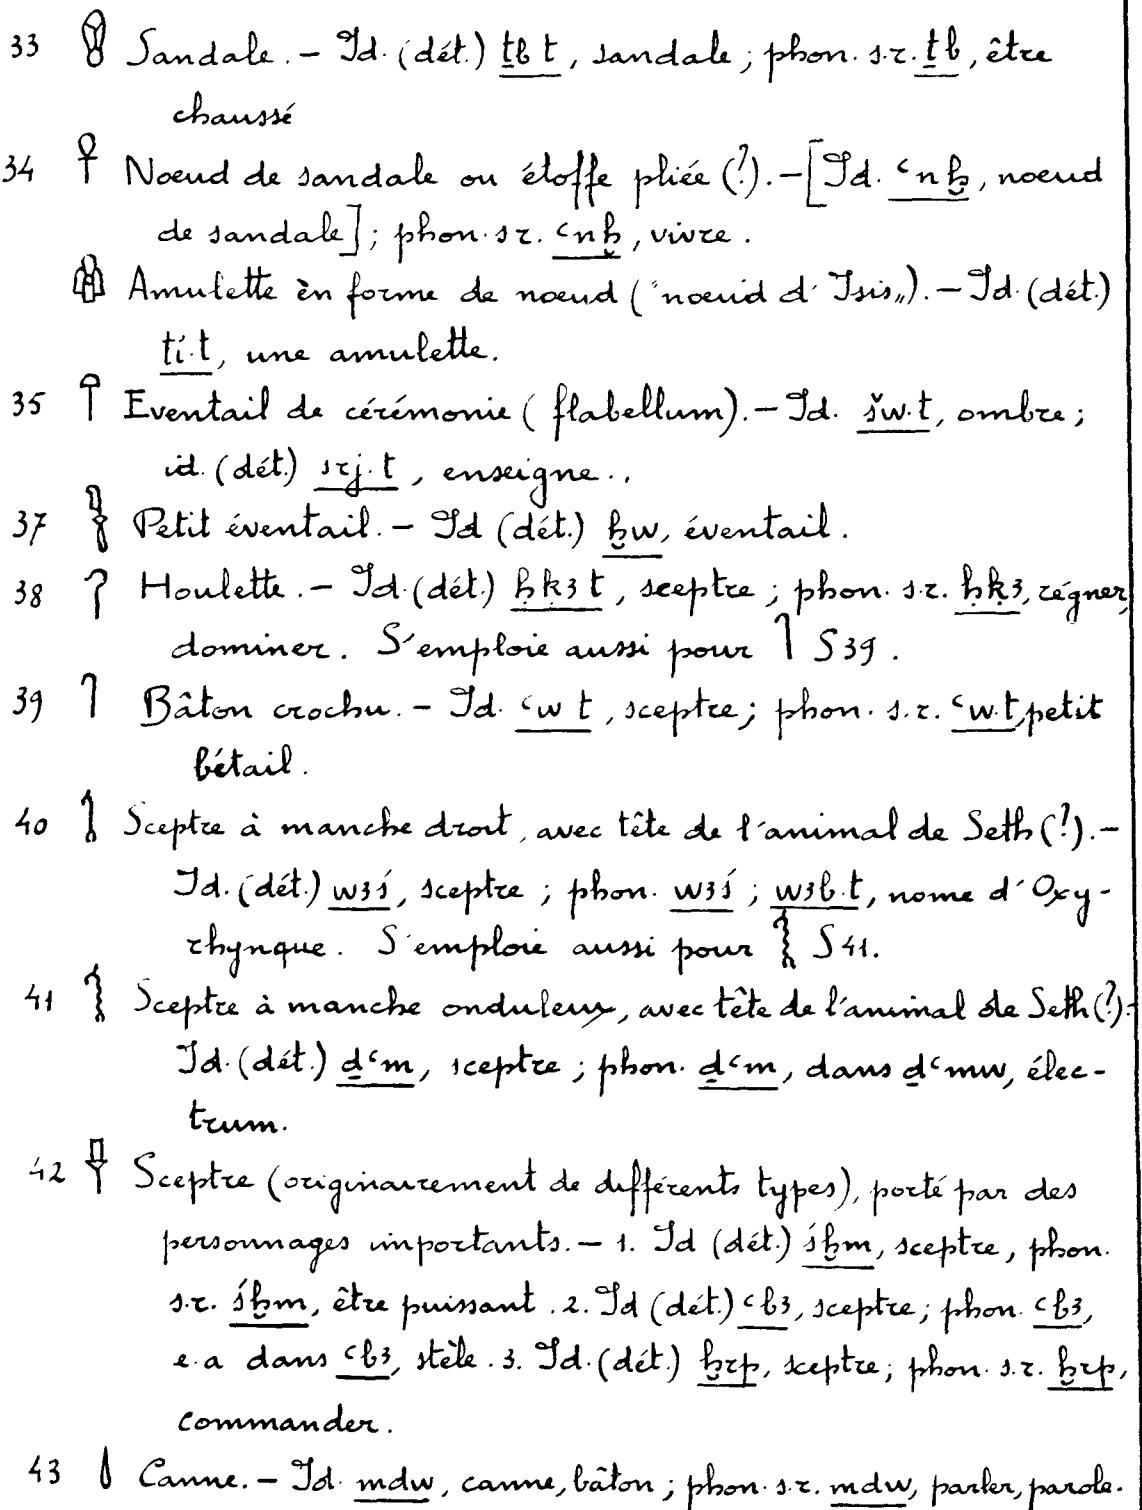 33 𓋸 Sandale. – Id. (dét.) ṯb t, sandale; phon. s.r. ṯb, être
chaussé
34 𓋹 Noeud de sandale ou étoffe pliée (?). – [Id. ꜥnḫ, noeud
de sandale]; phon. s r. ꜥnḫ, vivre.
𓎬 Amulette en forme de noeud ("noeud d'Isis„). – Id. (dét.)
tí·t, une amulette.
35 𓋺 Eventail de cérémonie (flabellum). – Id. šw·t, ombre;
id. (dét.) srj·t, enseigne..
37 𓋽 Petit éventail. – Id (dét.) ḫw, éventail.
38 𓋾 Houlette. – Id. (dét.) ḥḳꜣ t, sceptre; phon. s.r. ḥḳꜣ, régner,
dominer. S'emploie aussi pour 𓋿 S39.
39 𓋿 Bâton crochu. – Id. ꜥw t, sceptre; phon. s.r. ꜥw·t, petit
bétail.
40 𓌀 Sceptre à manche droit, avec tête de l'animal de Seth (?). –
Id. (dét.) wꜣś, sceptre; phon. wꜣś; wꜣb·t, nome d'Oxy-
rhynque. S'emploie aussi pour 𓌂 S41.
41 𓌂 Sceptre à manche onduleux, avec tête de l'animal de Seth (?)-
Id. (dét.) ḏꜥm, sceptre; phon. ḏꜥm, dans ḏꜥmw, élec-
trum.
42 𓌂 Sceptre (originairement de différents types), porté par des
personnages importants. – 1. Id (dét.) śḫm, sceptre, phon.
s.r. śḫm, être puissant. 2. Id (dét.) ꜥbꜣ, sceptre; phon. ꜥbꜣ,
e.a dans ꜥbꜣ, stèle. 3. Id. (dét.) ḫrp, sceptre; phon. s.r. ḫrp,
commander.
43 𓌃 Canne. – Id. mdw, canne, bâton; phon. s.r. mdw, parler, parole.